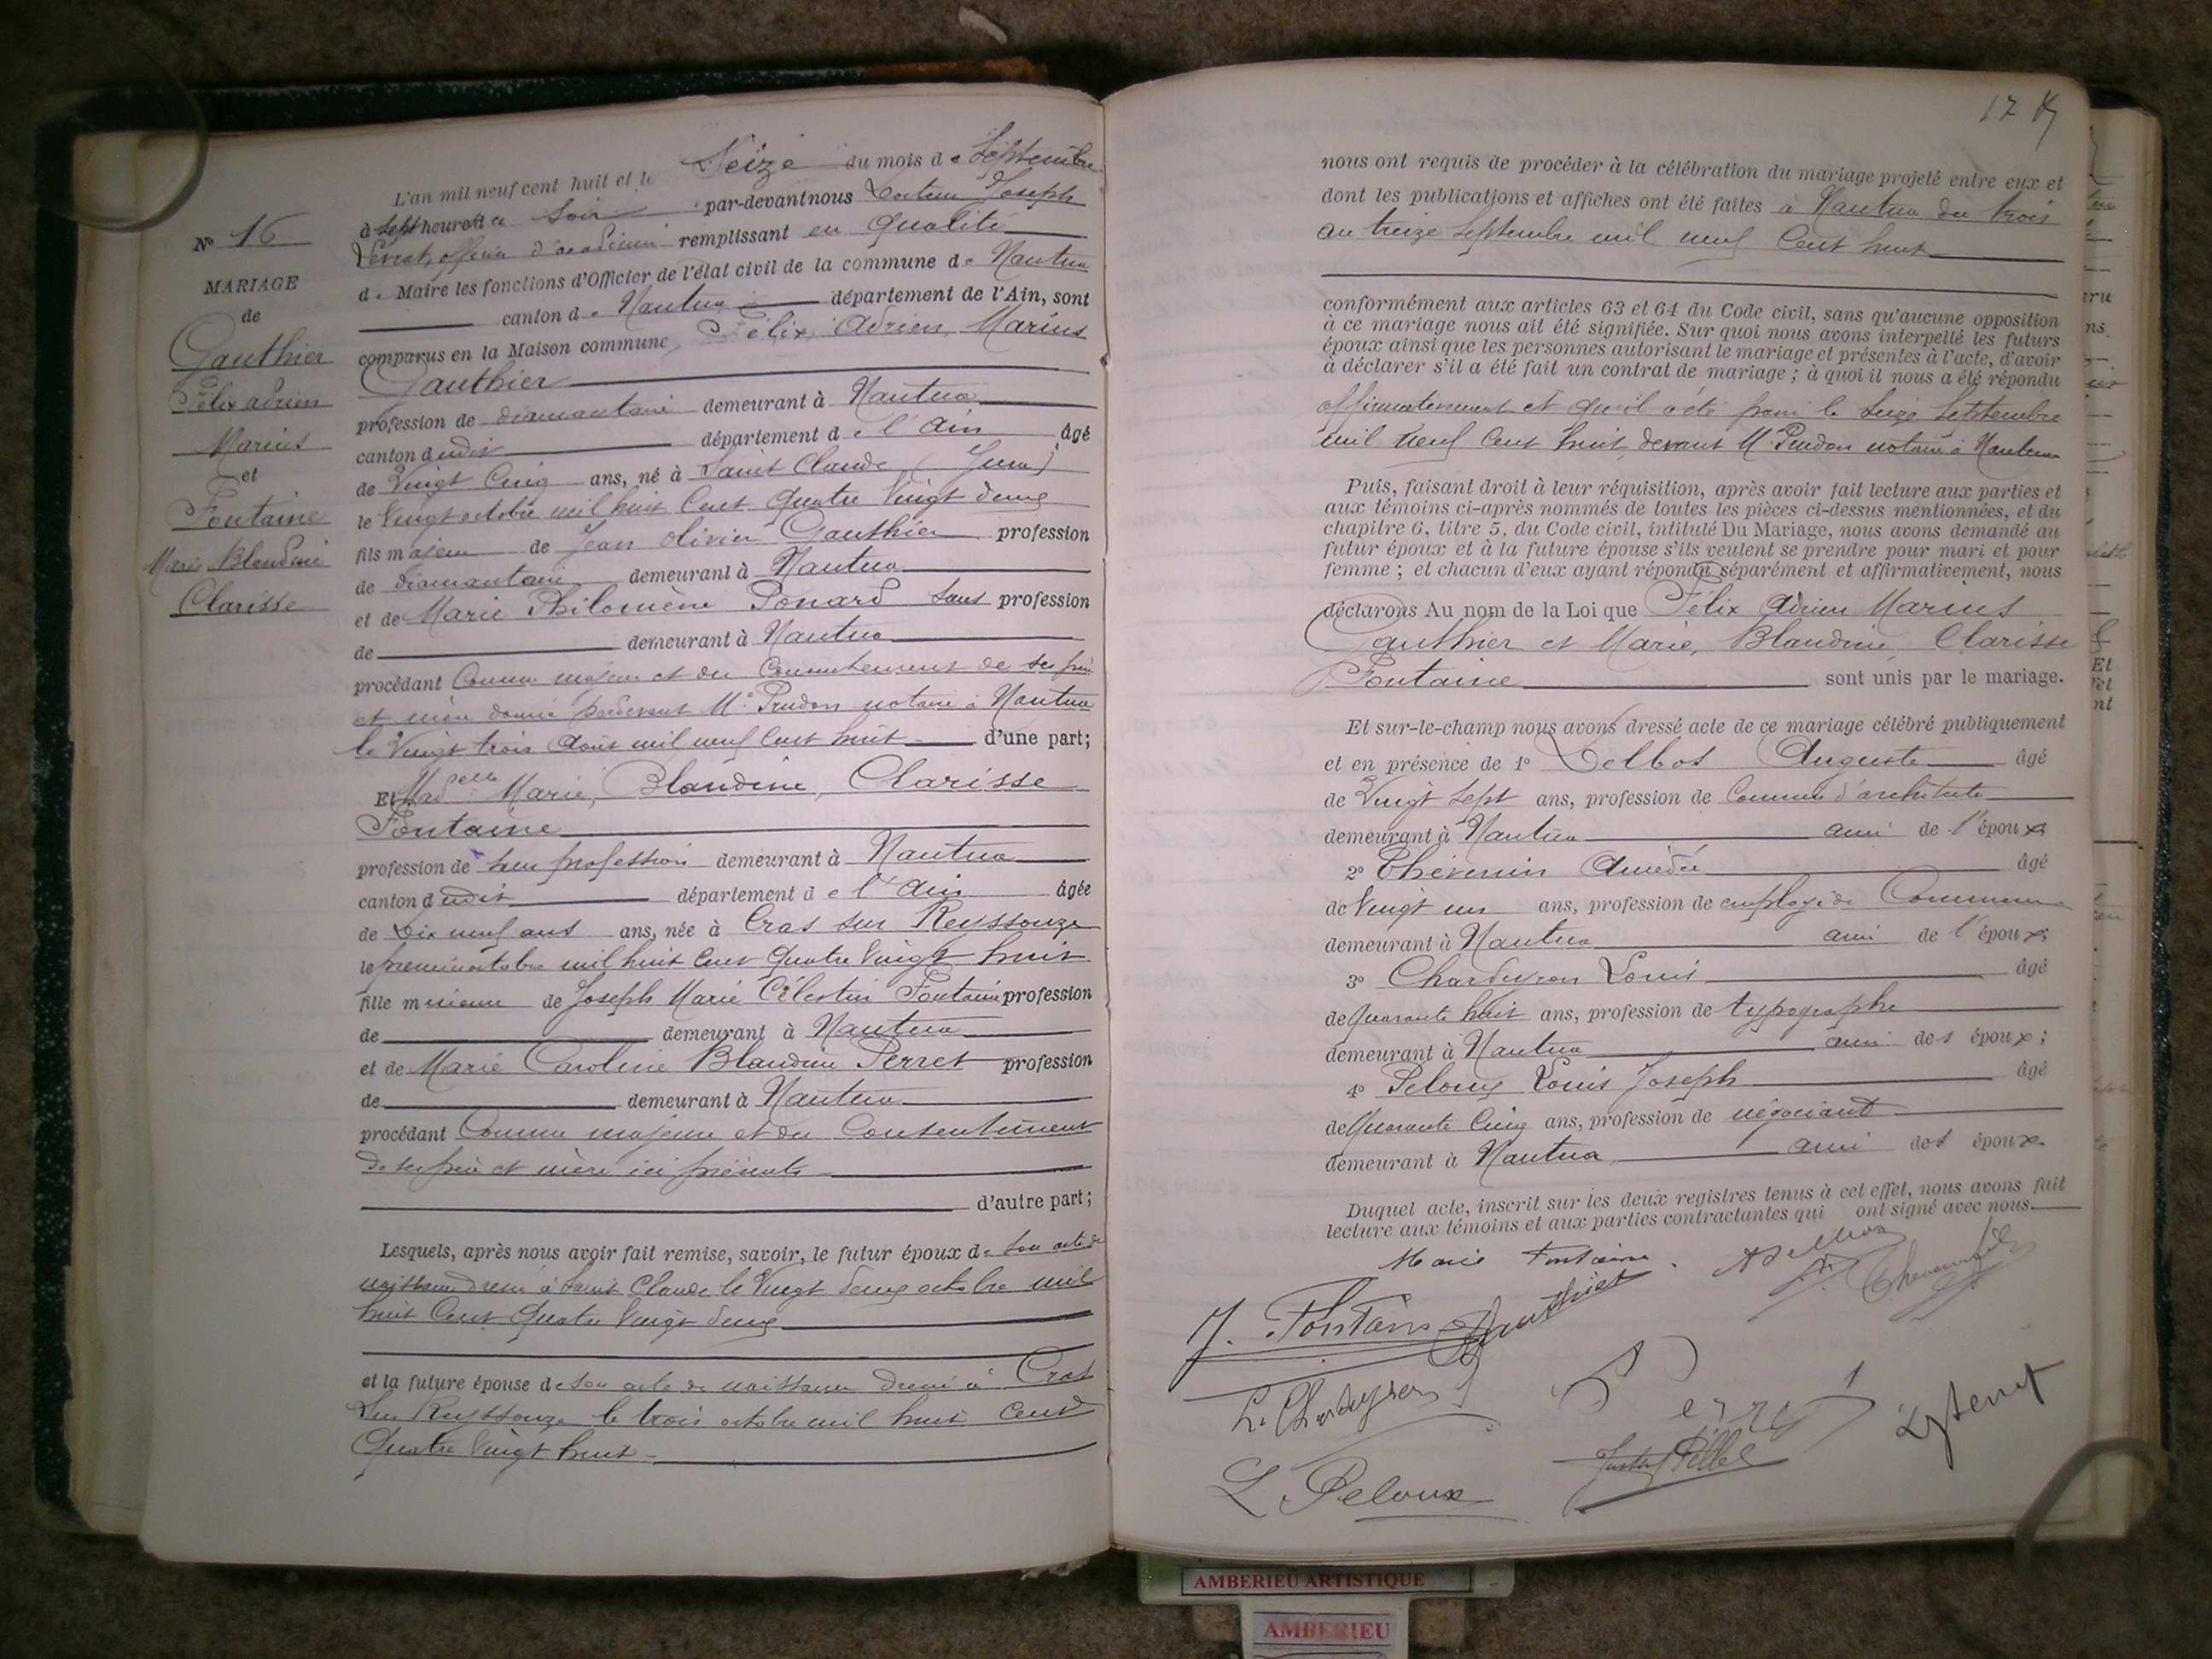 N° 16
MARIAGE
de
Gauthier
Félix adrien
Marius
et
Fontaine
Marie Blandine
Clarisse
L'an mil neuf cent huit et le Seize du mois de Septembre
à sept heures du Soir par-devant nous Docteur Joseph
officier d'académie remplissant en qualité
de Maire les fonctions d'Officier de l'état civil de la commune de Nantua
canton de Nantua département de l'Ain, sont
comparus en la Maison commune Félix, Adrien, Marius
Gauthier
profession de diamantaire demeurant à Nantua
canton dudit département de l'Ain âgé
de Vingt Cinq ans, né à Saint Claude (Jura)
le Vingt octobre mil huit Cent Quatre Vingt deux
fils majeur de Jean Olivier Gauthier profession
de diamantaire demeurant à Nantua
et de Marie Philomène Ponard Sans profession
de demeurant à Nantua
procédant Comme majeur et du Consentement de ses père
et mère donné pardevant Me Prudon notaire à Nantua
le Vingt trois Août mil neuf Cent huit d'une part;
Et Madelle Marie, Blandine, Clarisse
Fontaine
profession de sans profession demeurant à Nantua
canton dudit département de l'Ain âgée
de Dix neuf ans ans, née à Cras sur Reyssouze
le premier octobre mil huit Cent Quatre Vingt huit
fille mineure de Joseph Marie Célestin Fontaine profession
de demeurant à Nantua
et de Marie Caroline Blandine Perret profession
de demeurant à Nantua
procédant Comme majeure et du Consentement
de ses père et mère ici présents
d'autre part;
Lesquels, après nous avoir fait remise, savoir, le futur époux de Son acte de
naissance dressé à Saint Claude le Vingt deux octobre mil
huit Cent Quatre Vingt deux
et la future épouse de son acte de naissance dressé à Cras
Sur Reyssouze le trois octobre mil huit Cent
Quatre Vingt huit
17
nous ont requis de procéder à la célébration du mariage projeté entre eux et
dont les publications et affiches ont été faites à Nantua du trois
au treize Septembre mil neuf Cent huit
conformément aux articles 63 et 64 du Code civil, sans qu'aucune opposition
à ce mariage nous ait été signifiée. Sur quoi nous avons interpellé les futurs
époux ainsi que les personnes autorisant le mariage et présentes à l'acte, d'avoir
à déclarer s'il a été fait un contrat de mariage; à quoi il nous a été répondu
affirmativement et qu'il a été passé le Seize Septembre
mil neuf Cent huit, devant Me Prudon notaire à Nantua
Puis, faisant droit à leur réquisition, après avoir fait lecture aux parties et
aux témoins ci-après nommés de toutes les pièces ci-dessus mentionnées, et du
chapitre 6, titre 5, du Code civil, intitulé Du Mariage, nous avons demandé au
futur époux et à la future épouse s'ils veulent se prendre pour mari et pour
femme; et chacun d'eux ayant répondu séparément et affirmativement, nous
déclarons Au nom de la Loi que Félix Adrien Marius
Gauthier et Marie, Blandine, Clarisse
Fontaine sont unis par le mariage.
Et sur-le-champ nous avons dressé acte de ce mariage célébré publiquement
et en présence de 1° Delbos Auguste âgé
de Vingt Sept ans, profession de Commis d'architecte
demeurant à Nantua ami de l'époux;
2° Thévenin Amédée âgé
de Vingt un ans, profession de employé de Commerce
demeurant à Nantua ami de l'époux;
3° Chardeyron Louis âgé
de Quarante huit ans, profession de typographe
demeurant à Nantua ami des époux;
4° Peloux Louis Joseph âgé
de Quarante Cinq ans, profession de négociant
demeurant à Nantua ami des époux.
Duquel acte, inscrit sur les deux registres tenus à cet effet, nous avons fait
lecture aux témoins et aux parties contractantes qui ont signé avec nous.
Marie Fontaine ADelbos
Thevenin
J. Fontaine Gauthier
L. Chardeyron
L. Peloux
AMBERIEU ARTISTIQUE
AMBERIEU